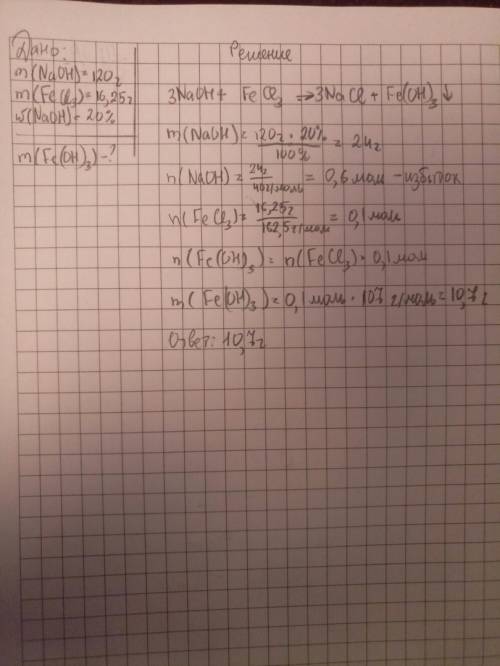 Дано:
m(NaOH)=120г
m(FeCl₃)=16,25г
ω(NaOH)=20%
m(Fe(OH)₃)-?
Решение
3NaOH + FeCl₃ ⇒ 3NaCl + Fe(OH)₃↓
m(NaOH) = 120г · 20% / 100% = 24г
n(NaOH) = 24г / 40г/моль = 0,6 моль - избыток
n(FeCl₃) = 16,25г / 162,5г/моль = 0,1 моль
n(Fe(OH)₃) = n(FeCl₃) = 0,1 моль
m(Fe(OH)₃) = 0,1 моль · 107 г/моль = 10,7г
Ответ: 10,7г